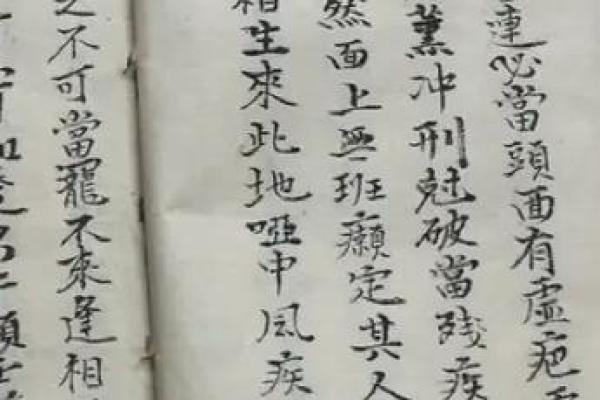 連必當頭面有虛疤
薰冲刑尅破當残疾
然面上無班癩定其人
相生來此地啞中風疾
之不可當罷不來逢相